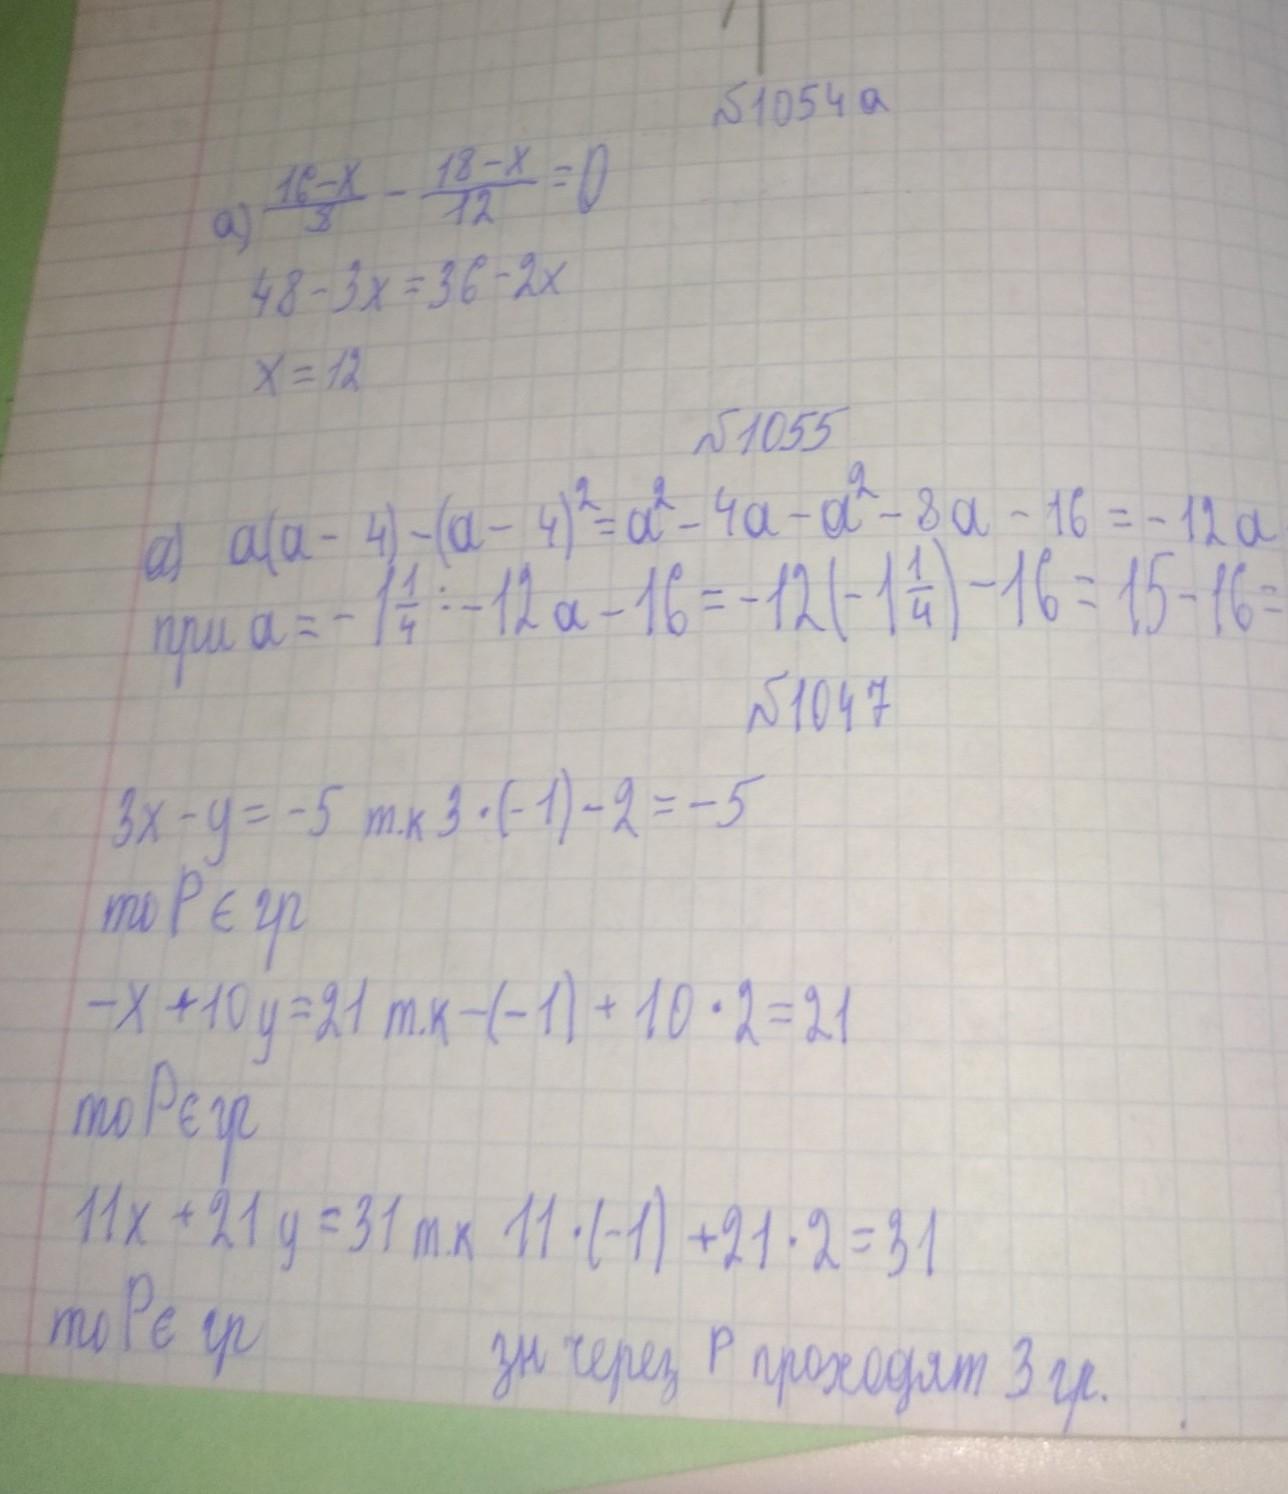 №1054а
а) (16-x)/8 - (18-x)/12 = 0
48-3x=36-2x
x=12
№1055
а) a(a-4)-(a-4)²=a²-4a-a²-8a-16=-12a
при a=-1 1/4:-12a-16=-12(-1 1/4)-16=15-16=
№1047
3x-y=-5 т.к 3·(-1)-2=-5
то P є гр
-x+10y=21 т.к -(-1)+10·2=21
то P є гр
11x+21y=31 т.к 11·(-1)+21·2=31
то P є гр
зн через P проходят 3 гр.